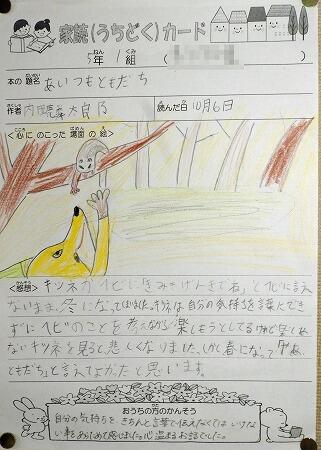 家読(うちどく)カード
5年 1組 (
本の題名 あいつもともだち
作者 内田麟太郎 読んだ日 10月6日
<心にのこった場面の絵>
<感想> キツネがヘビに「きみもげんきでね」とヘビに言え
ないまま、冬になってしまいました。キツネは自分の気持ちを言葉にでき
ずにヘビのことを考えながら楽しもうとしてるけど楽しめ
ないキツネを見ると悲しくなりました。しかし春になって「やあ、
ともだち」と言えてよかったと思います。
おうちの方のかんそう
自分の気持ちを、きちんと言葉で伝えなくてはいけな
い事をあらためて感じました。心温まるお話でした。